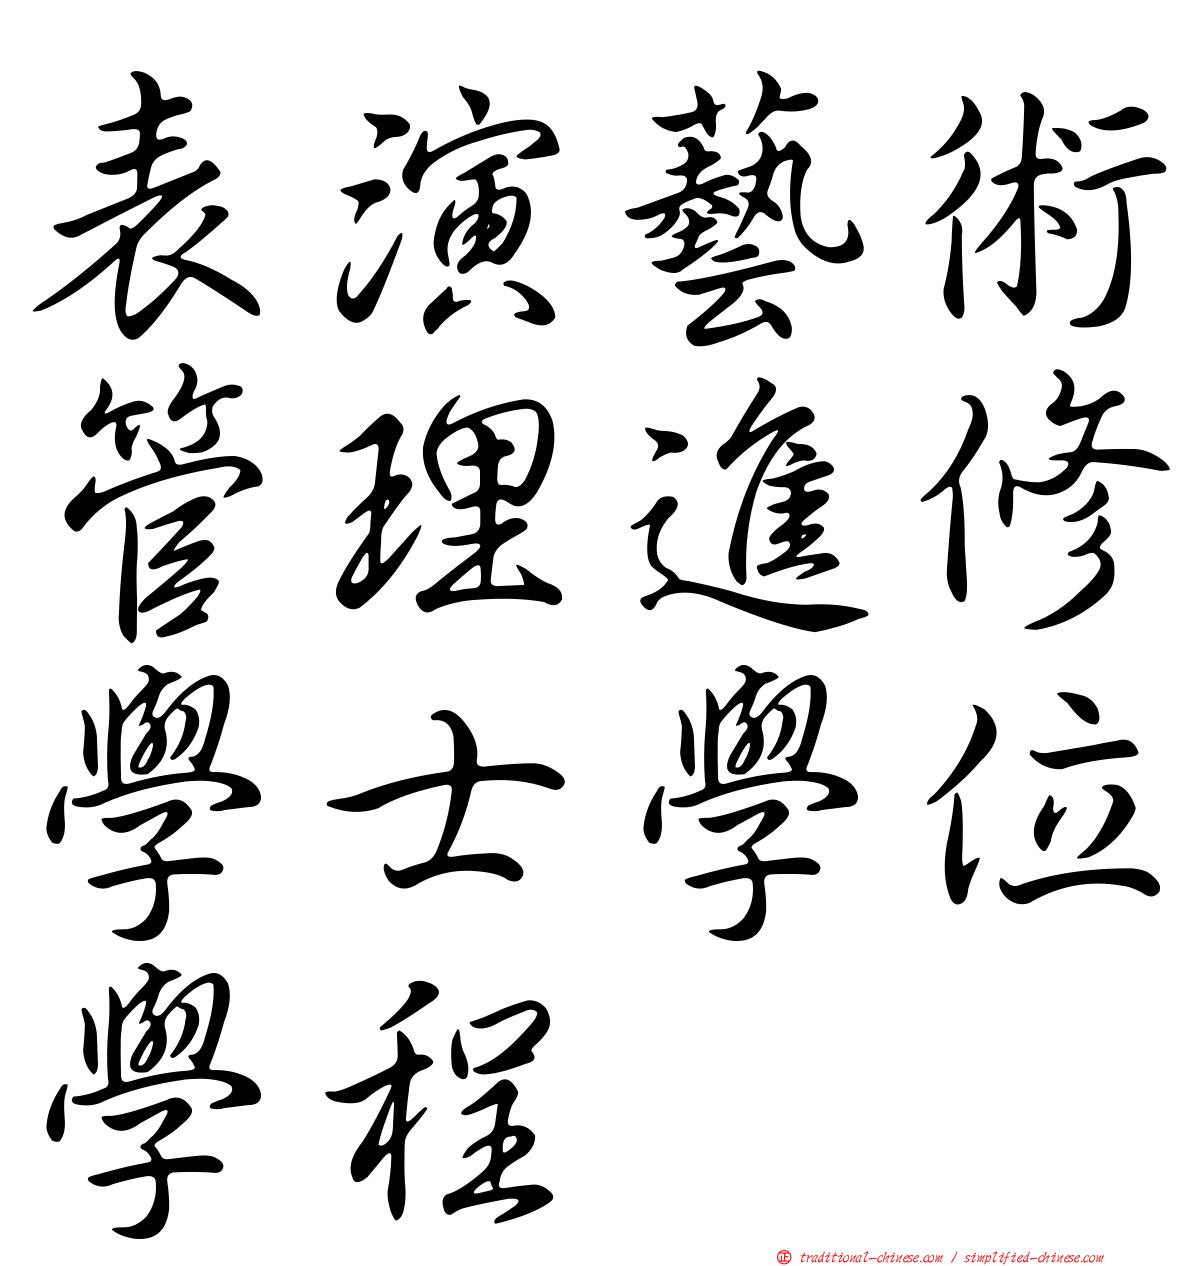 表演藝術
管理進修
學士學位
學程
正 traditional-chinese.com / simplified-chinese.com